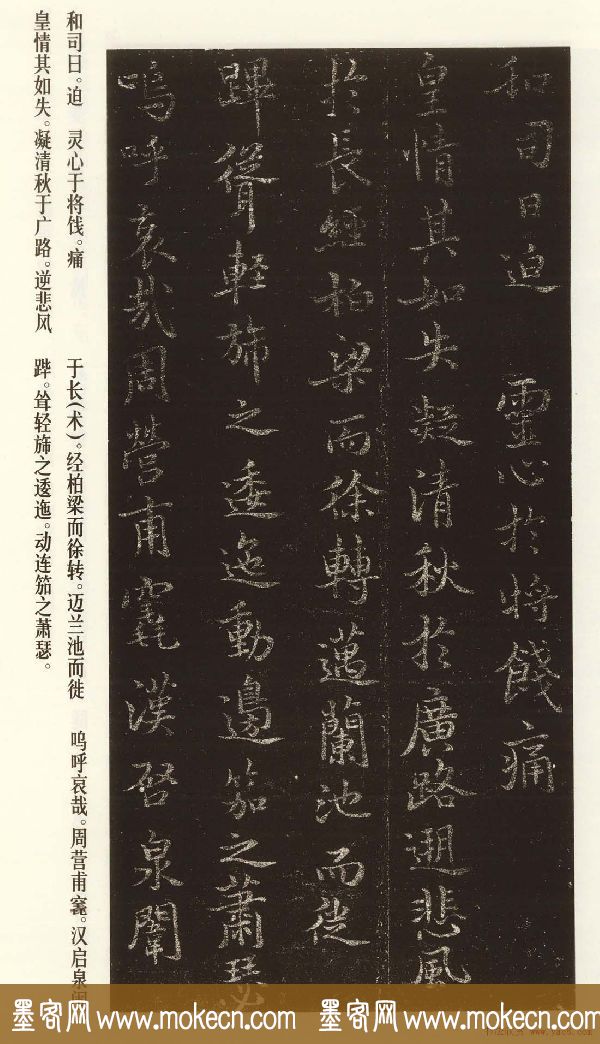 和司日迫 靈心於將餞痛
皇情其如失凝清秋於廣路遡悲風
於長經柏梁而徐轉邁蘭池而從
蹕聳輕旆之逶迤動邊笳之蕭瑟
嗚呼哀哉周營甫竁漢啓泉
和司日。迫 灵心于将饯。痛
皇情其如失。凝清秋于广路。逆悲风
于长(术)。经柏梁而徐转。迈兰池而徙
跸。耸轻旆之逶迤。动连笳之萧瑟。
呜呼哀哉。周营甫竁。汉启泉
墨客网 www.mokecn.com 墨客网 www.mokecn.com